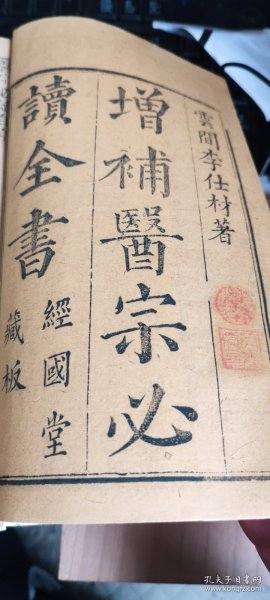 雲間李仕材著
增補醫宗必
讀全書
經國堂
藏板
孔夫子旧书网